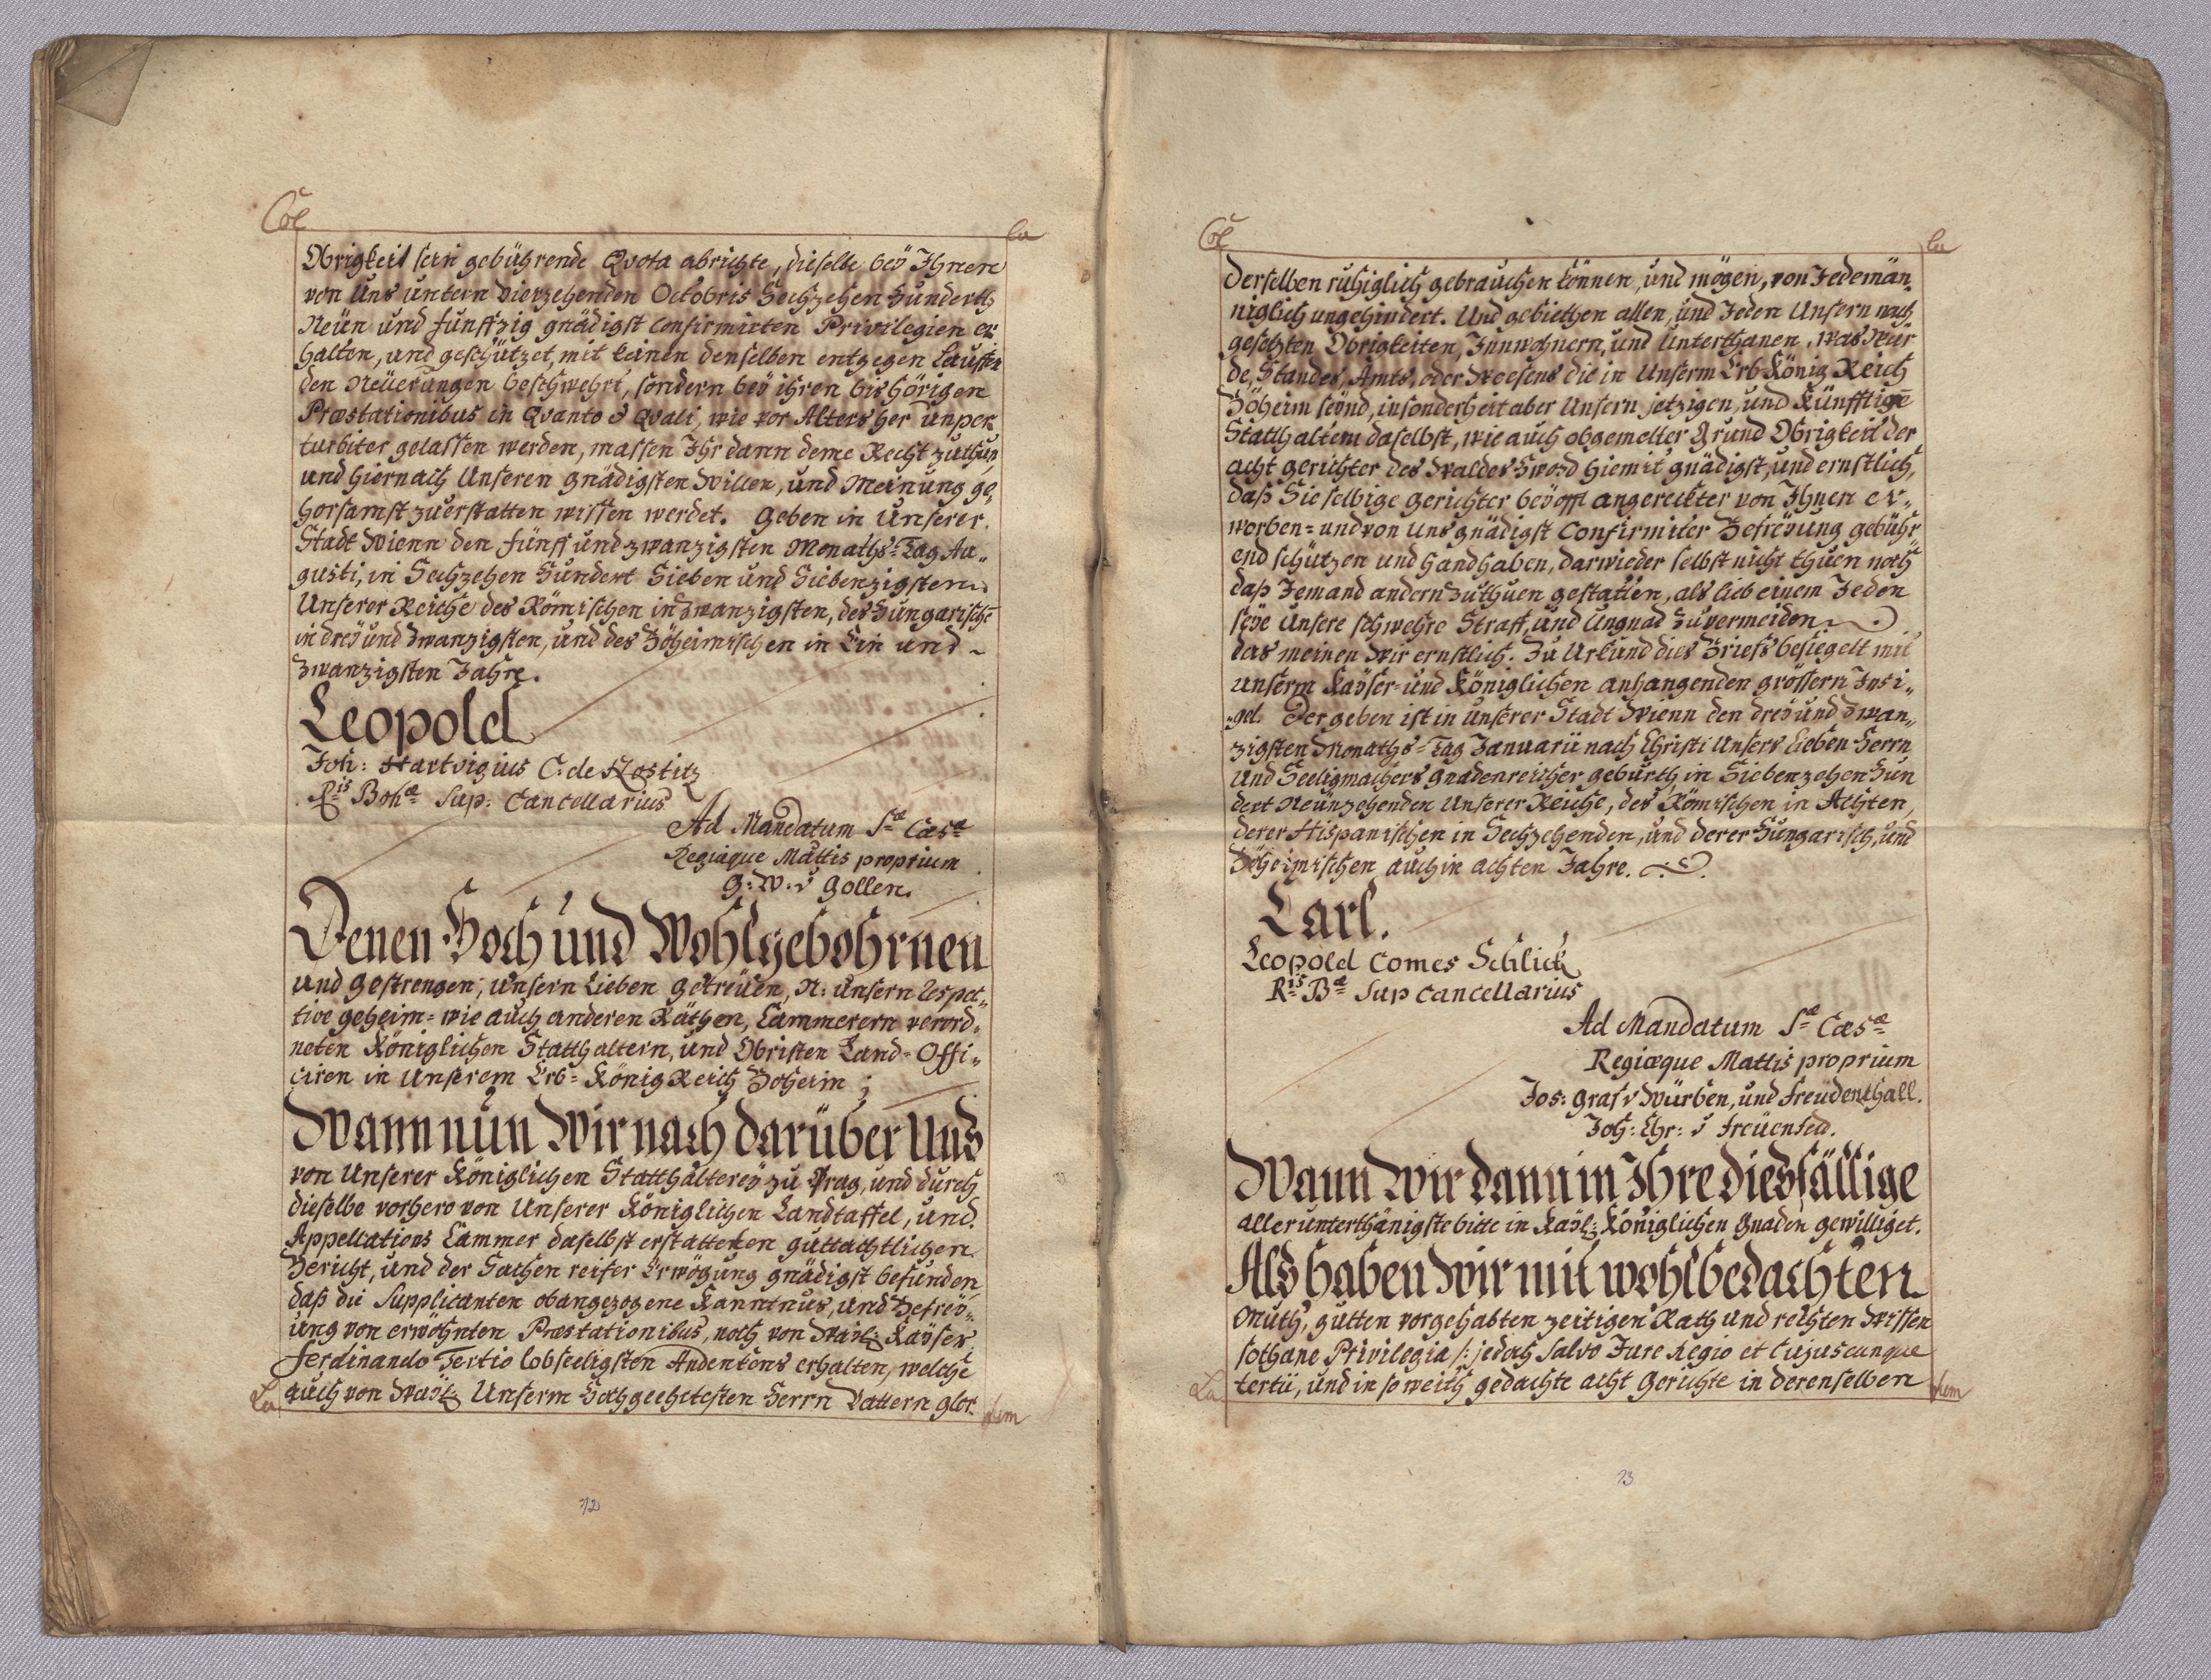 Col
la
Obrigkeit sein gebührende Qvota abrichte, dieselbe beÿ Ihnen
von Uns untern Vierzehenden Octobris Sechzehen Hunderth
Neün und funffzig gnädigst confirmirten Privilegien er
halten, und geschützet, mit keinen denselben entgegen Lauffen
den Neüerungen beschwehrt, sondern beÿ ihren bishörigen
Præstationibus in Qvanto & Qvali, wie vor Alters her unper
turbiter gelassen werden, massen Ihr dann deme Recht zuthun
und hiernach Unseren gnädigsten Willen, und Meinung ge„
horsamst zuerstatten wissen werdet. Geben in Unserer
Stadt Wienn den fünff und zwanzigsten Monaths-Tag Au„
gusti, in Sechzehen Hundert Sieben und Siebenzigsten
Unserer Reiche des Römischen in Zwanzigsten, des Hungarischē
in dreÿ und Zwanzigsten, und des Böheimischen in Ein und ~
Zwanzigsten Jahre.
Leopold
Joh: Hartvigius C: de Nostitz
Ris Bohæ Sup: Cancellarius
Ad Mandatum Sæ Cæsæ
Regiæque Mattis proprium
G: W. v Gollen.
Denen Hoch und Wohlgebohrnen
und Gestrengen, unsern Lieben Getreüen, N: unsern Respec„
tive geheim= wie auch anderen Räthen, Cammerern verord„
neten Königlichen Statthaltern, und Obristen Land=Offi„
ciren in Unserem Erb=König Reich Boheim ;
Wann nun Wir nach darüber Uns
von Unserer Königlichen Statthaltereÿ zu Prag, und durch
dieselbe vorhero von Unserer Königlichen Landtaffel, und
Appellations Cammer daselbst erstatteten guttachtlichen
Bericht, und der Sachen reifer Erwögung gnädigst befunden
daß die Supplicanten obangezogene Kanntnus, und Befreÿ„
ung von erwöhnten Præstationibus, noch von Waÿl: Kaÿser
Ferdinando Tertio lobseeligsten Andenkens erhalten, welche
auch von Waÿl: Unserm Hochgeehrtesten Herrn Vattern glor
La
dem
72
Col
la
derselben ruhiglich gebrauchen können, und mögen, von Jedemän„
niglich ungehindert. Und gebiethen allen, und Jeden Unsern nach
gesetzten Obrigkeiten, Innwohnern, und Unterthanen, was Wür
de, Standes, Amts, oder Weesens die in Unserm Erb König Reich
Böheim seÿnd, insonderheit aber Unsern jetzigen, und Künfftigē
Statthaltern daselbst, wie auch obgemelter Grund Obrigkeit der
acht gerichter des Waldes Hwozd hiemit gnädigst, und ernstlich,
daß Sie selbige Gerichter beÿ offt angereckter von Ihnen er„
worben= und von Uns gnädigst Confirmirter Befreÿung gebühr
end schützen und handhaben, darwieder selbst nicht thuen noch
daß Jemand andern zuthuen gestatten, als lieb einem Jeden
seÿe Unsere schwehre Straff, und Ungnad zuvermeiden
das meinen Wir ernstlich. Zu Urkund dies Briefs besiegelt mit
unserm Kaÿser=und Königlichen anhangenden grössern Insi„
„gel. Der geben ist in Unserer Stadt Wienn den dreÿ und Zwan„
zigsten Monaths=Tag Januarii nach Christi Unsers Lieben Herrn
und Seeligmachers Gnadenreicher geburth, in Siebenzehen Hun
dert Neünzehenden Unserer Reiche, des Römischen in Achten,
derer Hispanischen in Sechzehenden, und derer Hungarisch, und
Böheimischen auch in achten Jahre.
Carl.
Leopold Comes Schlick
Ris Bæ Sup Cancellarius
Ad Mandatum Sæ Cæsæ
Regiæque Mattis proprium
Jos: Graf v Würben, und Freüdenthall.
Joh: Chr: v Freüenfeld.
Wann Wir dann in Ihre diesfällige
allerunterthänigste bitte in Kaÿl: Königlichen Gnaden gewilliget.
Als haben Wir mit wohlbedachten
Muth, gutten vorgehabten zeitigen Rath und rechten Wissen
sothane Privilegia /: jedoch Salvo Jure Regio et Cujuscunque
tertii, und in so weith gedachte acht Gerichte in derenselben
La
dem
73